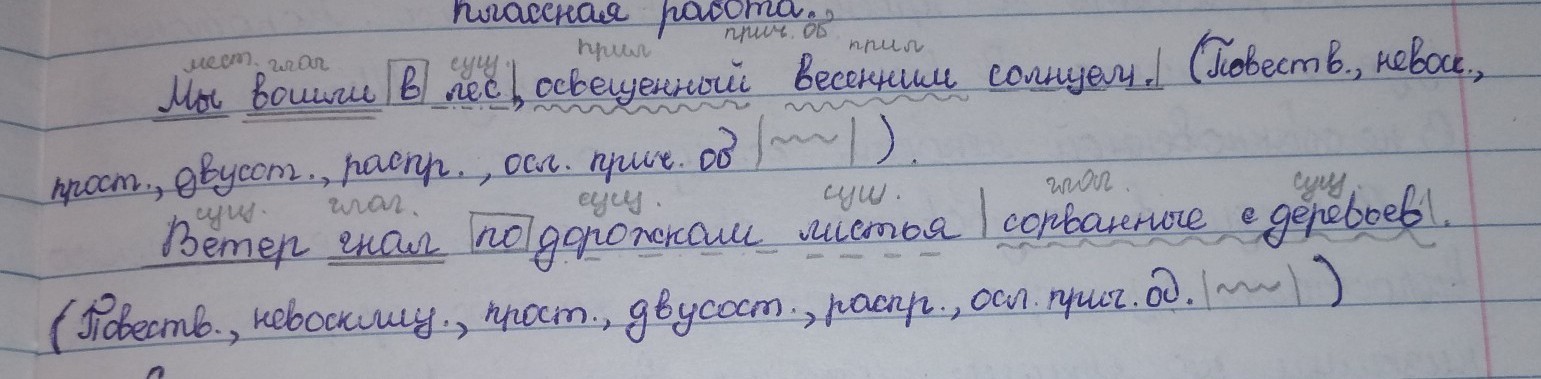 Классная работа.
прич. об
мест. глаг сущ. прил прил
Мы вошли в лес, освещенный весенним солнцем. (Повеств., невоск.,
прост., двусот., распр., осл. прич. об |~~|).
сущ. глаг. сущ. сущ. глаг. сущ.
Ветер гнал по дорожкам листья сорванные с деревьев.
(Повеств., невосклиц., прост., двусост., распр., осл. прич. об. |~~|)